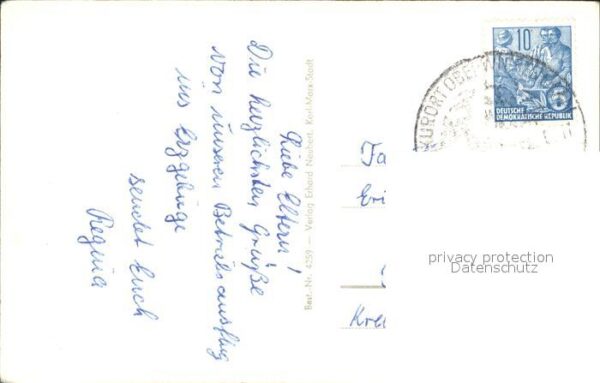 Liebe Eltern!
Die herzlichsten Grüße
von unserem Betriebsausflug
ins Erzgebirge
sendet Euch
Regina
Best.-Nr. 4259 — Verlag Erhard Neubert, Karl-Marx-Stadt
10
DEUTSCHE
DEMOKRATISCHE REPUBLIK
KURORT OBERWIESENTHAL
Fa
Kre
privacy protection
Datenschutz